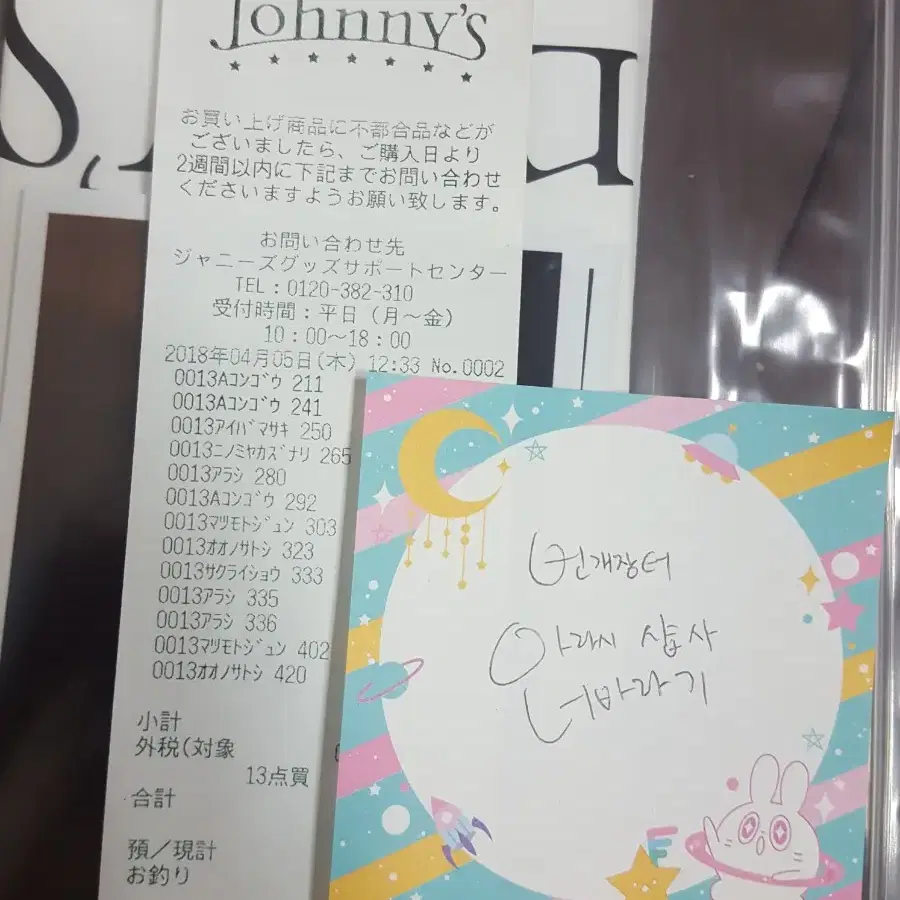 Johnny's
お買い上げ商品に不都合品などが
ございましたら、ご購入日より
2週間以内に下記までお問い合わせ
くださいますようお願い致します。
お問い合わせ先
ジャニーズグッズサポートセンター
TEL：0120-382-310
受付時間：平日（月～金）
10：00～18：00
2018年04月05日(木) 12:33 No.0002
0013Aｺﾝｺﾞｳ 211
0013Aｺﾝｺﾞｳ 241
0013ｱｲﾊﾞﾏｻｷ 250
0013ﾆﾉﾐﾔｶｽﾞﾅﾘ 265
0013ｱﾗｼ 280
0013Aｺﾝｺﾞｳ 292
0013ﾏﾂﾓﾄｼﾞｭﾝ 303
0013ｵｵﾉｻﾄｼ 323
0013ｻｸﾗｲｼｮｳ 333
0013ｱﾗｼ 335
0013ｱﾗｼ 336
0013ﾏﾂﾓﾄｼﾞｭﾝ 402
0013ｵｵﾉｻﾄｼ 420
小計
外税(対象
13点買
合計
預／現計
お釣り
번개장터
아라시 샵사
너바라기